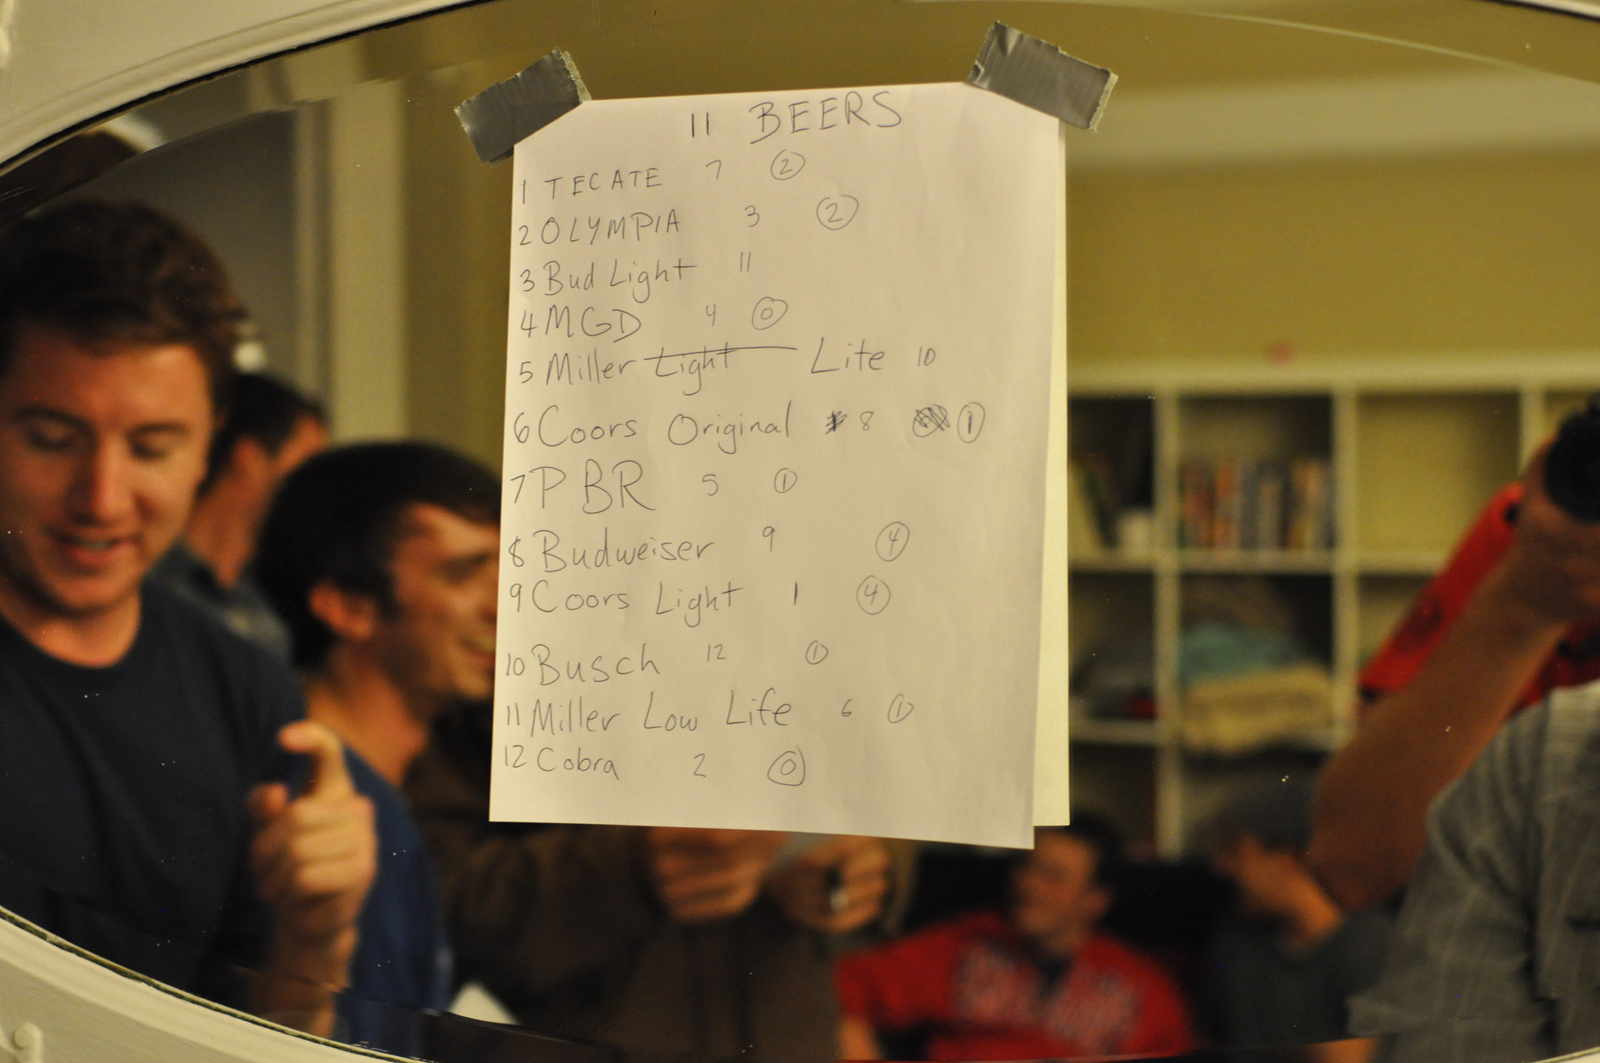 11 BEERS
1 TECATE 7 2
2 OLYMPIA 3 2
3 Bud Light 11
4 MGD 4 0
5 Miller Light Lite 10
6 Coors Original 8 1
7 PBR 5 1
8 Budweiser 9 4
9 Coors Light 1 4
10 Busch 12 1
11 Miller Low Life 6 1
12 Cobra 2 0